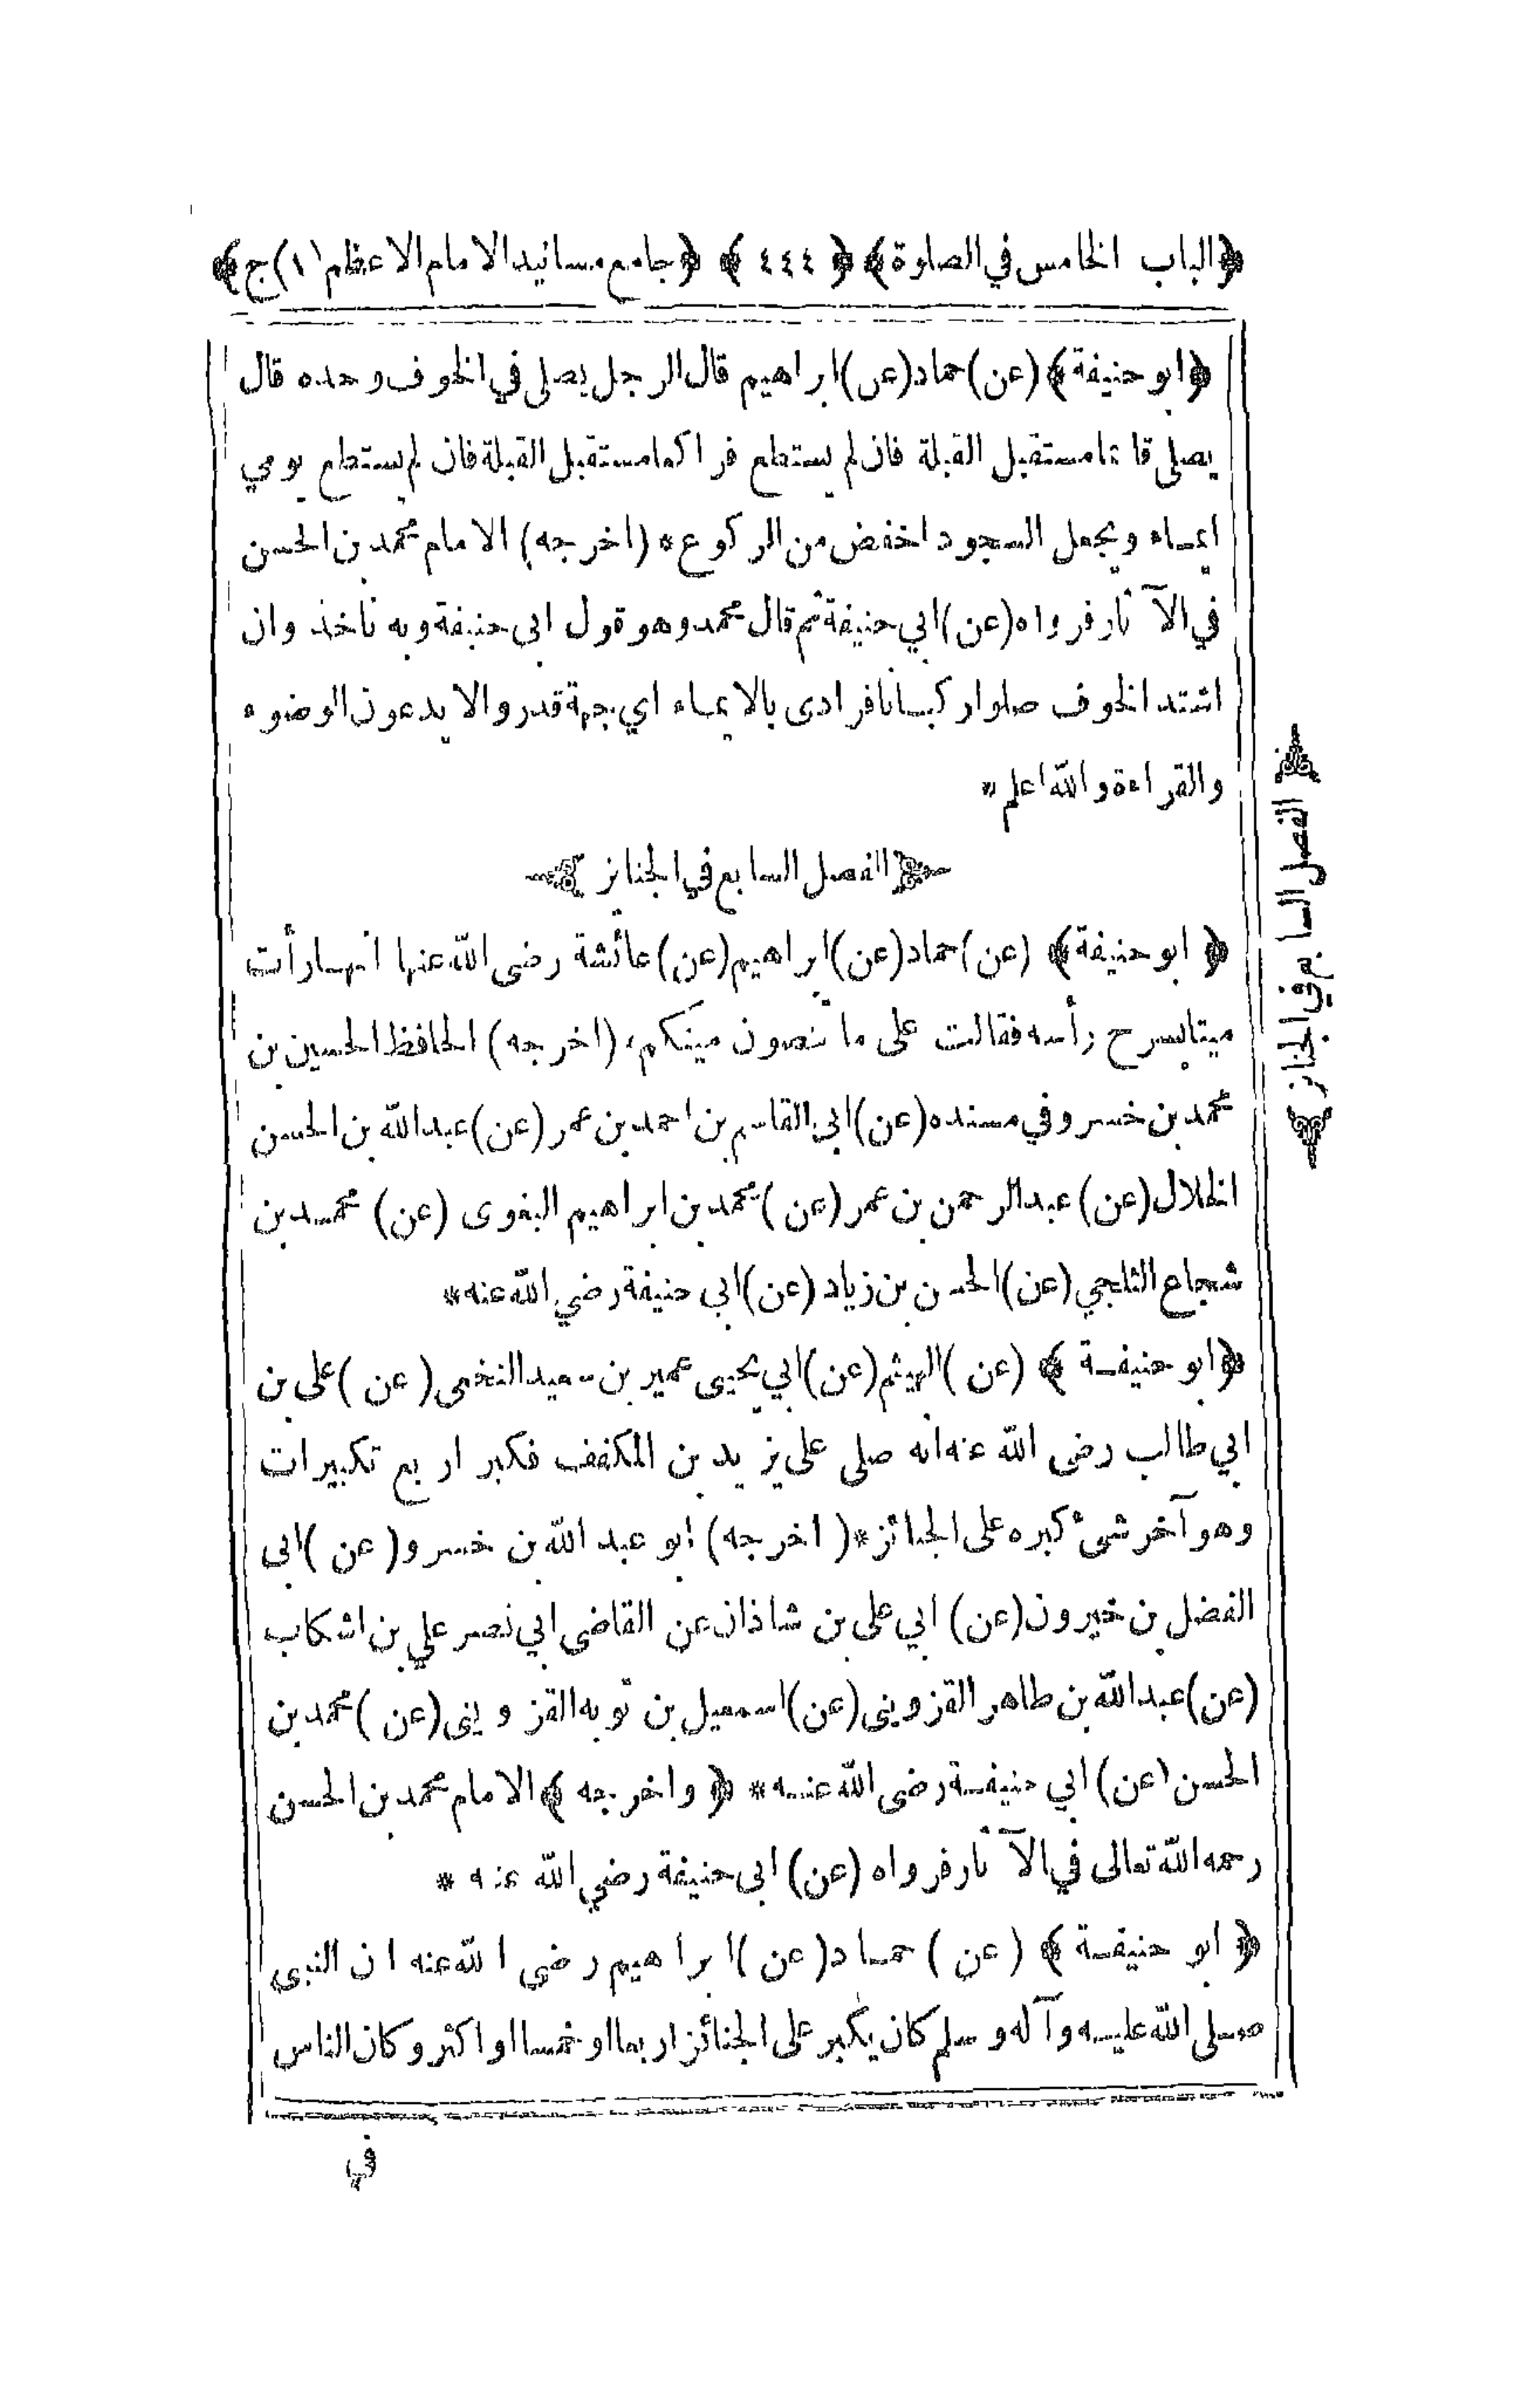 ﴿الباب الخامس في الصلوة﴾ ﴿٤٤٤﴾ ﴿جامع مسانيد الامام الاعظم (١) ج﴾
﴿ابو حنيفة﴾ (عن) حماد (عن) ابراهيم قال الرجل يصلى في الخوف وحده قال
يصلى قائما مستقبل القبلة فان لم يستطع فراكعا مستقبل القبلة فان لم يستطع يومي
ايماء ويجعل السجود اخفض من الركوع * (اخرجه) الامام محمد بن الحسن
في الآثار فرواه (عن) ابي حنيفة ثم قال محمد وهو قول ابى حنيفة وبه نأخذ وان
اشتد الخوف صلوا ركبانا فرادى بالايماء اي جهة قدروا لا يدعون الوضوء
والقراءة والله اعلم *
الفصل السابع في الجنائز
الفصل السابع في الجنائز
﴿ابو حنيفة﴾ (عن) حماد (عن) ابراهيم (عن) عائشة رضى الله عنها انها رأت
ميتا يسرح رأسه فقالت على ما تنصون ميتكم * (اخرجه) الحافظ الحسين بن
محمد بن خسرو في مسنده (عن) ابى القاسم بن احمد بن عمر (عن) عبد الله بن الحسن
الخلال (عن) عبد الرحمن بن عمر (عن) محمد بن ابراهيم البغوى (عن) محمد بن
شجاع الثلجي (عن) الحسن بن زياد (عن) ابي حنيفة رضي الله عنه *
﴿ابو حنيفة﴾ (عن) الهيثم (عن) ابي يحيى عمير بن سعيد النخعى (عن) على بن
ابي طالب رضى الله عنه انه صلى على يزيد بن المكفف فكبر اربع تكبيرات
وهو آخر شئ كبره على الجنائز * (اخرجه) ابو عبد الله بن خسرو (عن) ابى
الفضل بن خيرون (عن) ابي على بن شاذان عن القاضى ابي نصر علي بن اشكاب
(عن) عبد الله بن طاهر القزوينى (عن) اسمعيل بن توبه القزوينى (عن) محمد بن
الحسن (عن) ابي حنيفة رضى الله عنه * ﴿واخرجه﴾ الامام محمد بن الحسن
رحمه الله تعالى في الآثار فرواه (عن) ابى حنيفة رضي الله عنه *
﴿ابو حنيفة﴾ (عن) حماد (عن) ابراهيم رضى الله عنه ان النبى
صلى الله عليه وآله وسلم كان يكبر على الجنائز اربعا او خمسا او اكثر وكان الناس
في